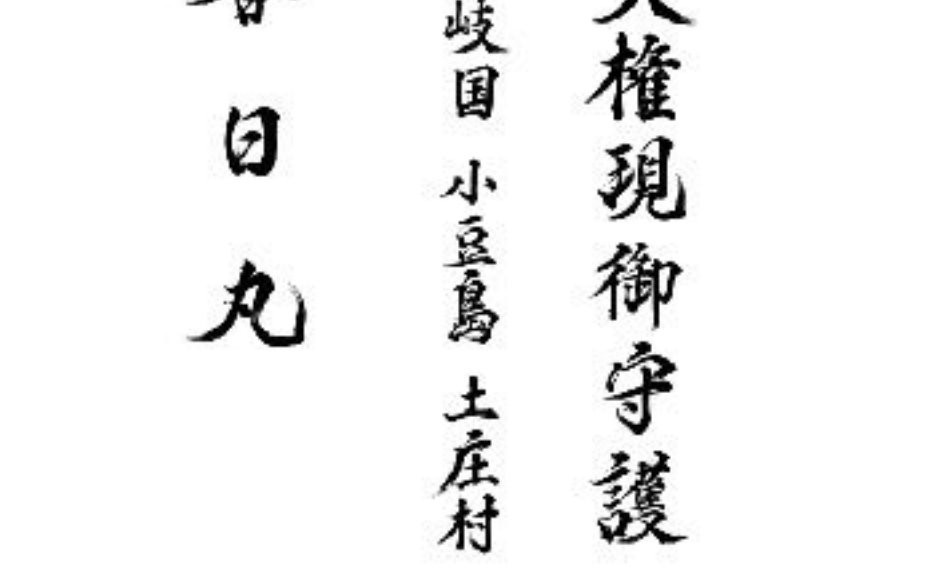 権現御守護
岐国 小豆島 土庄村
日丸